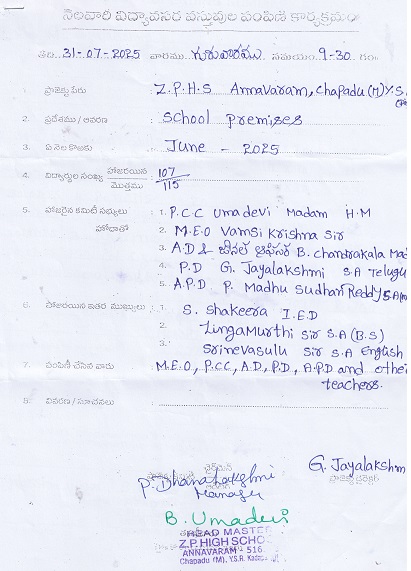 నెలవారి విద్యావసర వస్తువుల పంపిణీ కార్యక్రమం
తేది. 31-07-2025 వారము గురువారము సమయం 9-30 గం
1. ప్రాజెక్టు పేరు : Z.P.H.S Annavaram, Chapadu (M) Y.S.
2. ప్రదేశము / ఆవరణ : School Premises
3. ఏ నెల కొరకు : June - 2025
4. విద్యార్థుల సంఖ్య హాజరయిన / మొత్తము : 107 / 115
5. హాజరైన కమిటీ సభ్యులు : 1. P.C.C Umadevi Madam H.M
హోదాతో 2. M.E.O Vamsi Krishna Sir
3. A.D & జోనల్ ఆఫీసర్ B. Chandrakala Mad
4. P.D G. Jayalakshmi S.A Telugu
5. A.P.D P. Madhu Sudhan Reddy S.A
6. హాజరయిన ఇతర ముఖ్యులు : 1. S. Shakeera I.E.D
2. Lingamurthi Sir S.A (B.S)
3. Srinevasulu Sir S.A English
7. పంపిణీ చేసిన వారు : M.E.O, P.C.C, A.D, P.D, A.P.D and othe
teachers.
8. వివరణ / సూచనలు :
P. Dhanalakshmi
Manager
G. Jayalakshm
ప్రాజెక్ట్ డైరెక్టర్
B. Umadevi
HEAD MASTE
Z.P. HIGH SCHO
ANNAVARAM 516
Chapadu (M), Y.S.R. Kada